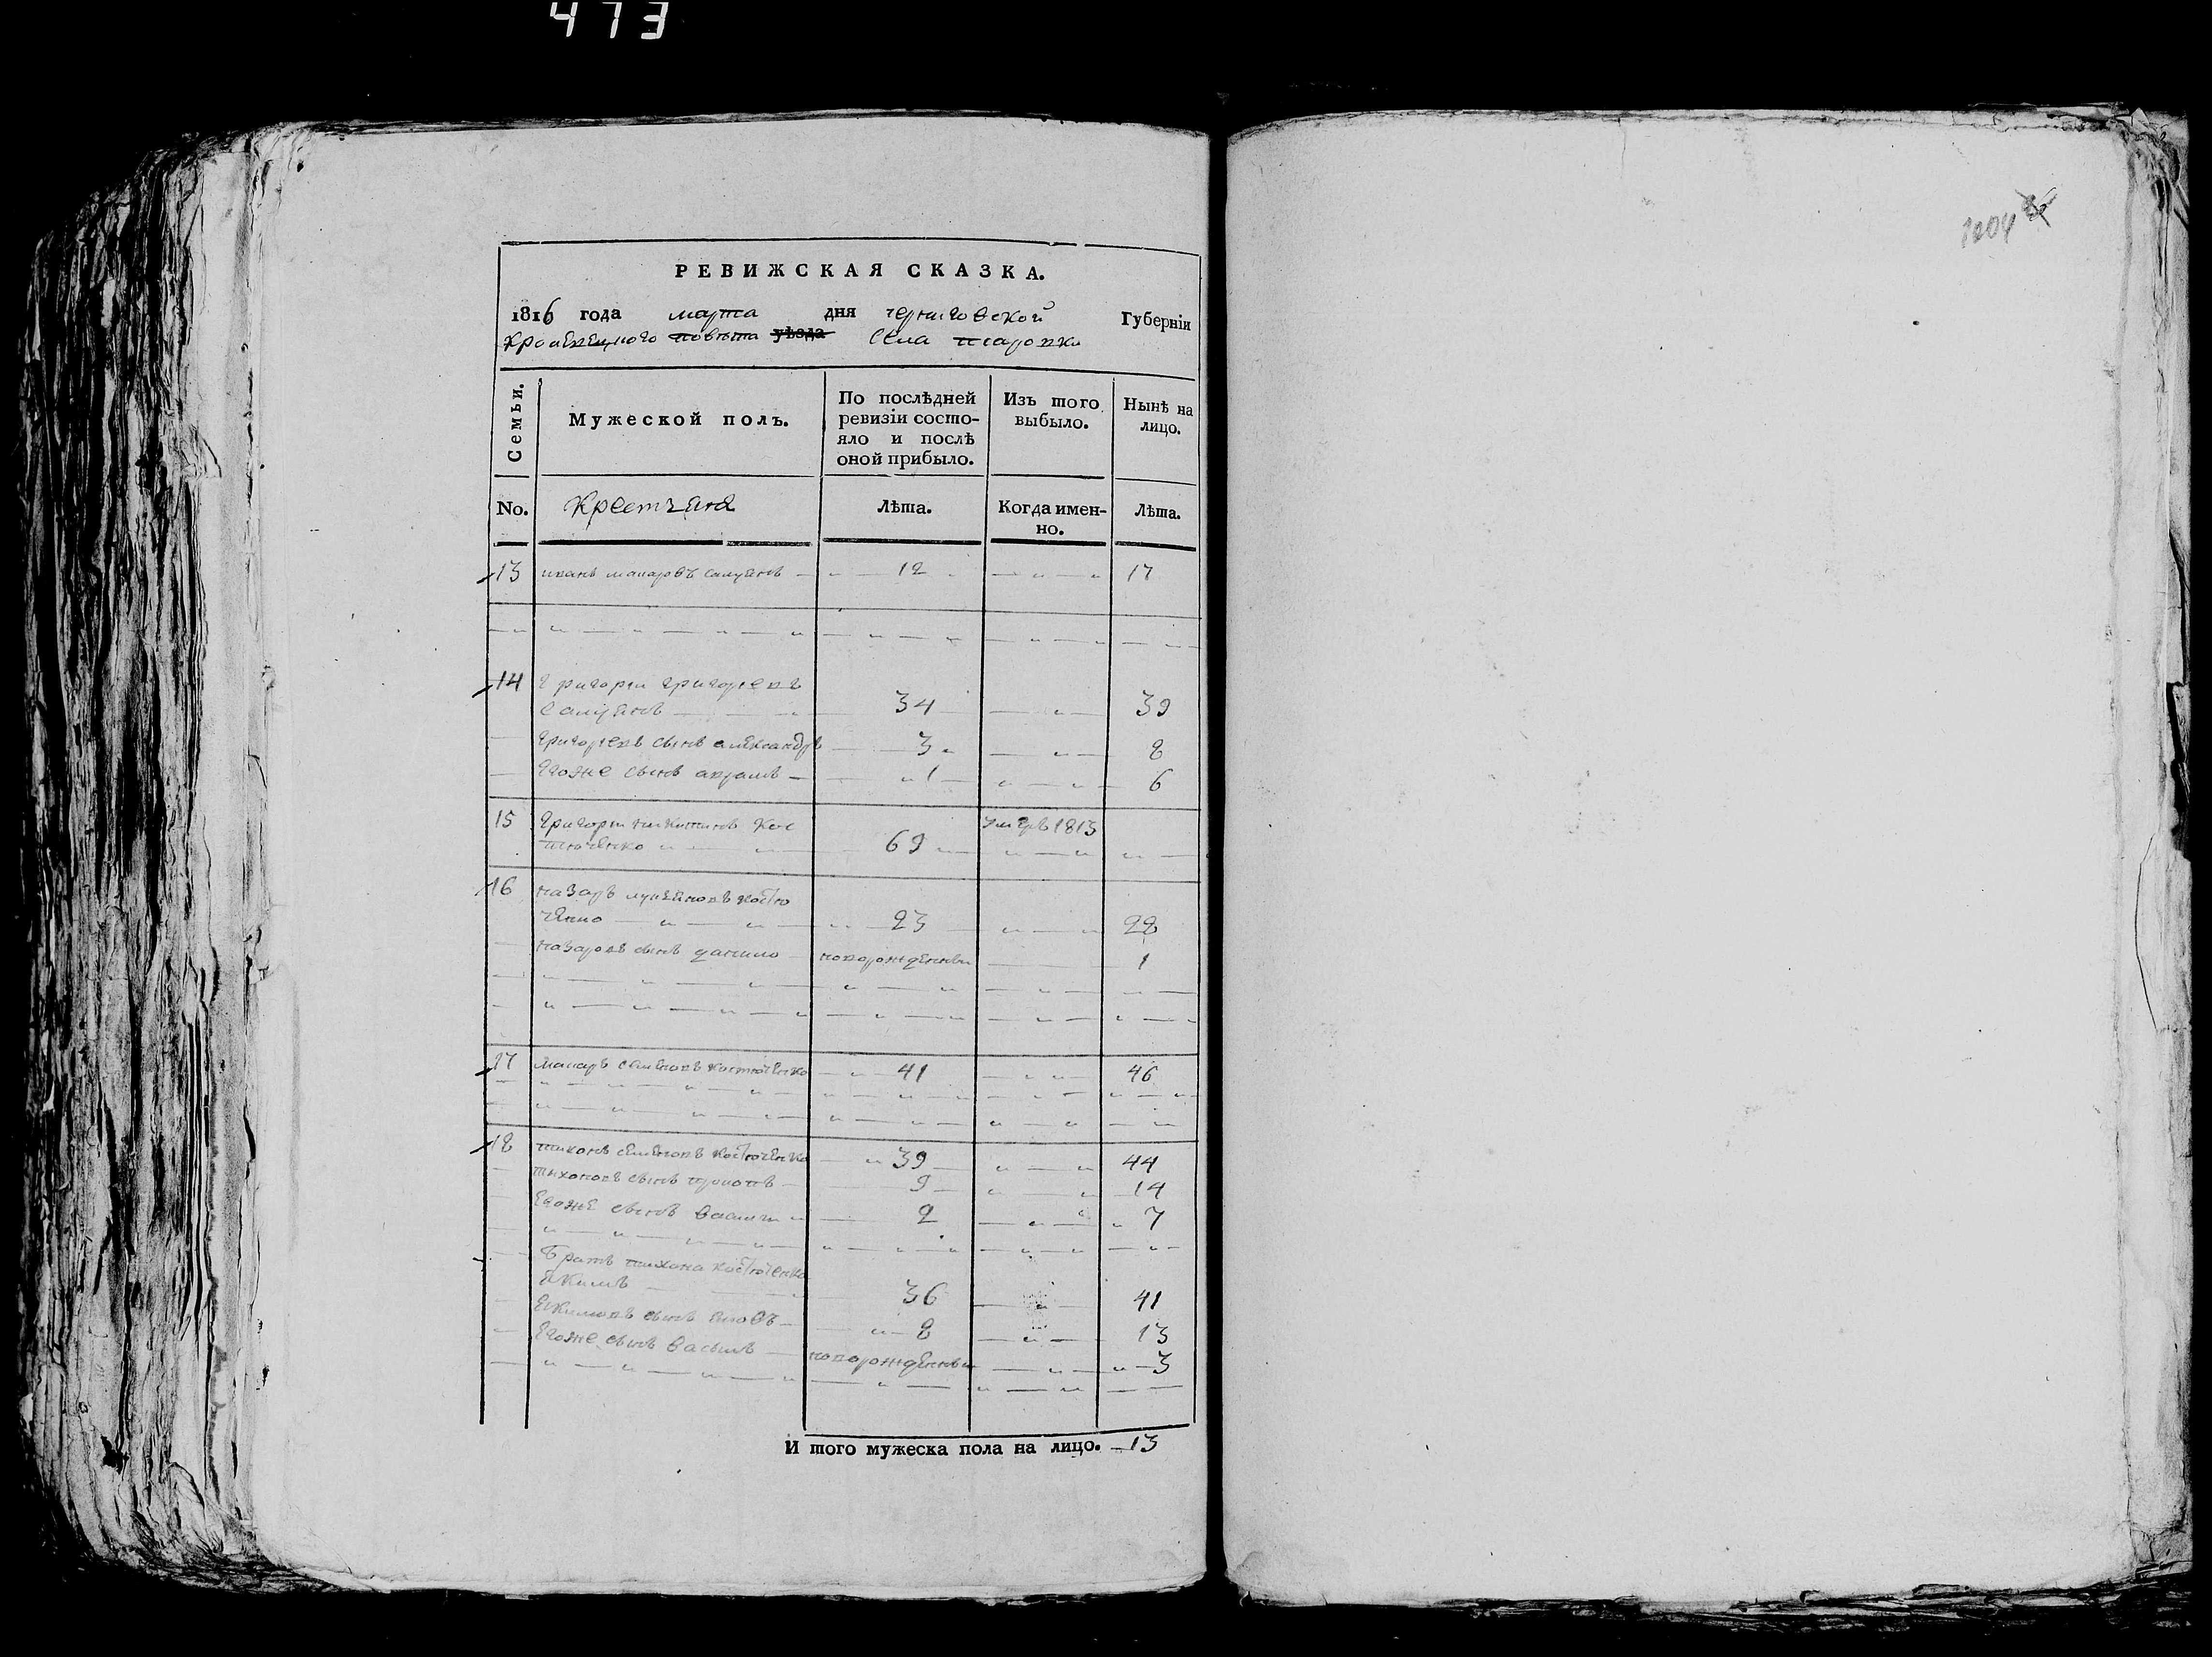 473
1204
РЕВИЖСКАЯ СКАЗКА.
1816 года марта дня черниговской Губерніи
Кролевецкого повѣта уѣзда села
Семьи. Мужеской полъ. По послѣдней ревизіи состояло и послѣ оной прибыло. Изъ того выбыло. Нынѣ на лицо.
No. Крестьяне Лѣта. Когда именно. Лѣта.
13 иванъ макаровъ 12 17
14 Григори григориевъ
34 39
григориевъ сынъ александръ 3 8
Егоже сынъ аврамъ 1 6
15 Григори никитинъ Кос умеръ 1813
тюченко 69
16 назаръ костю
ченко 23 28
назаровъ сынъ данило новорожденны 1
17 макаръ семеновъ костюченко 41 46
18 тихонъ семеновъ костюченко 39 44
тихоновъ сынъ прокопъ 9 14
Егоже сынъ васили 2 7
братъ тихона костюченка
Якимъ 36 41
Якимовъ сынъ 8 13
Егоже сынъ василь новорожденны 3
И того мужеска пола на лицо. 13